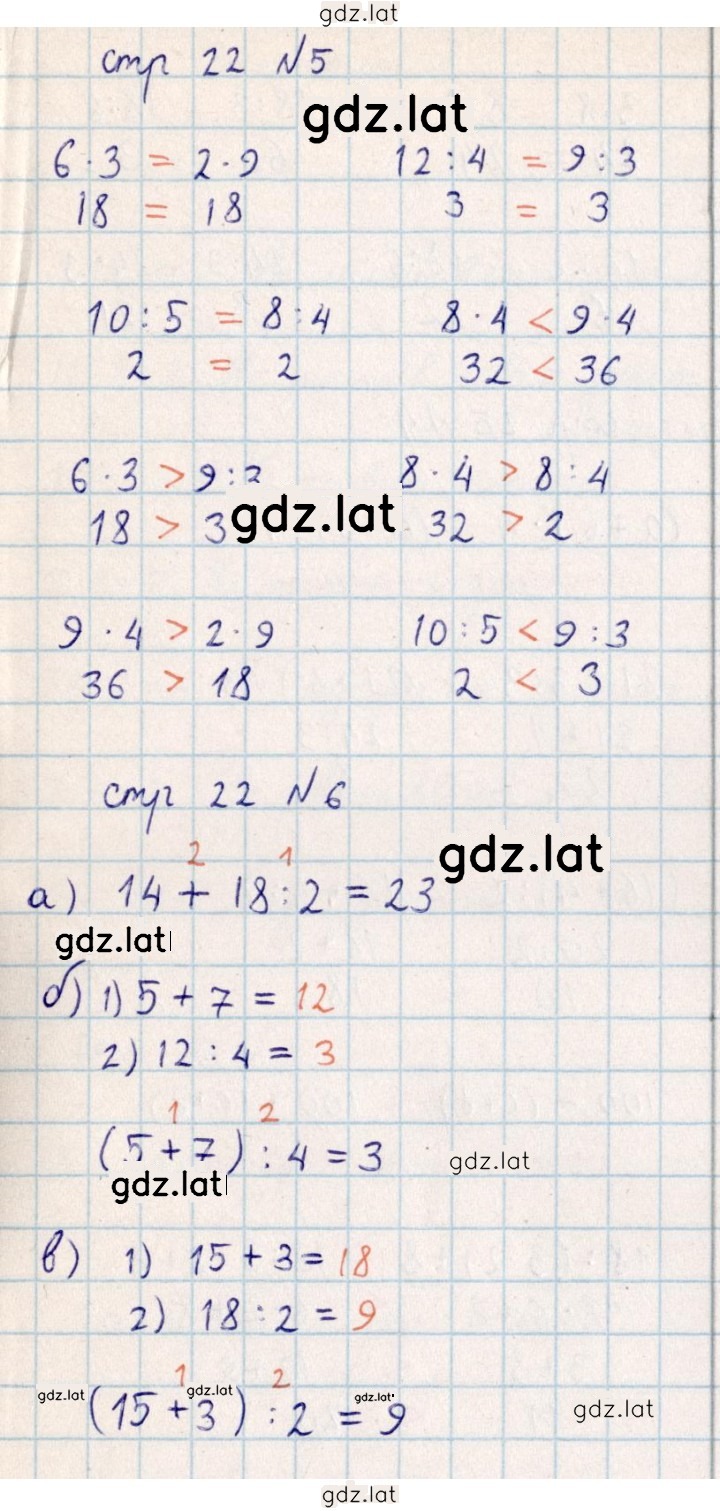 gdz.lat
стр 22 №5
gdz.lat
6·3 = 2·9 12:4 = 9:3
18 = 18 3 = 3
10:5 = 8:4 8·4 < 9·4
2 = 2 32 < 36
6·3 > 9:3 8·4 > 8:4
18 > 3 gdz.lat 32 > 2
9·4 > 2·9 10:5 < 9:3
36 > 18 2 < 3
стр 22 №6
gdz.lat
2 1
а) 14 + 18:2 = 23
gdz.lat
б) 1) 5 + 7 = 12
2) 12 : 4 = 3
1 2
(5 + 7) : 4 = 3 gdz.lat
gdz.lat
в) 1) 15 + 3 = 18
2) 18 : 2 = 9
1 2
gdz.lat gdz.lat gdz.lat
(15 + 3) : 2 = 9 gdz.lat
gdz.lat